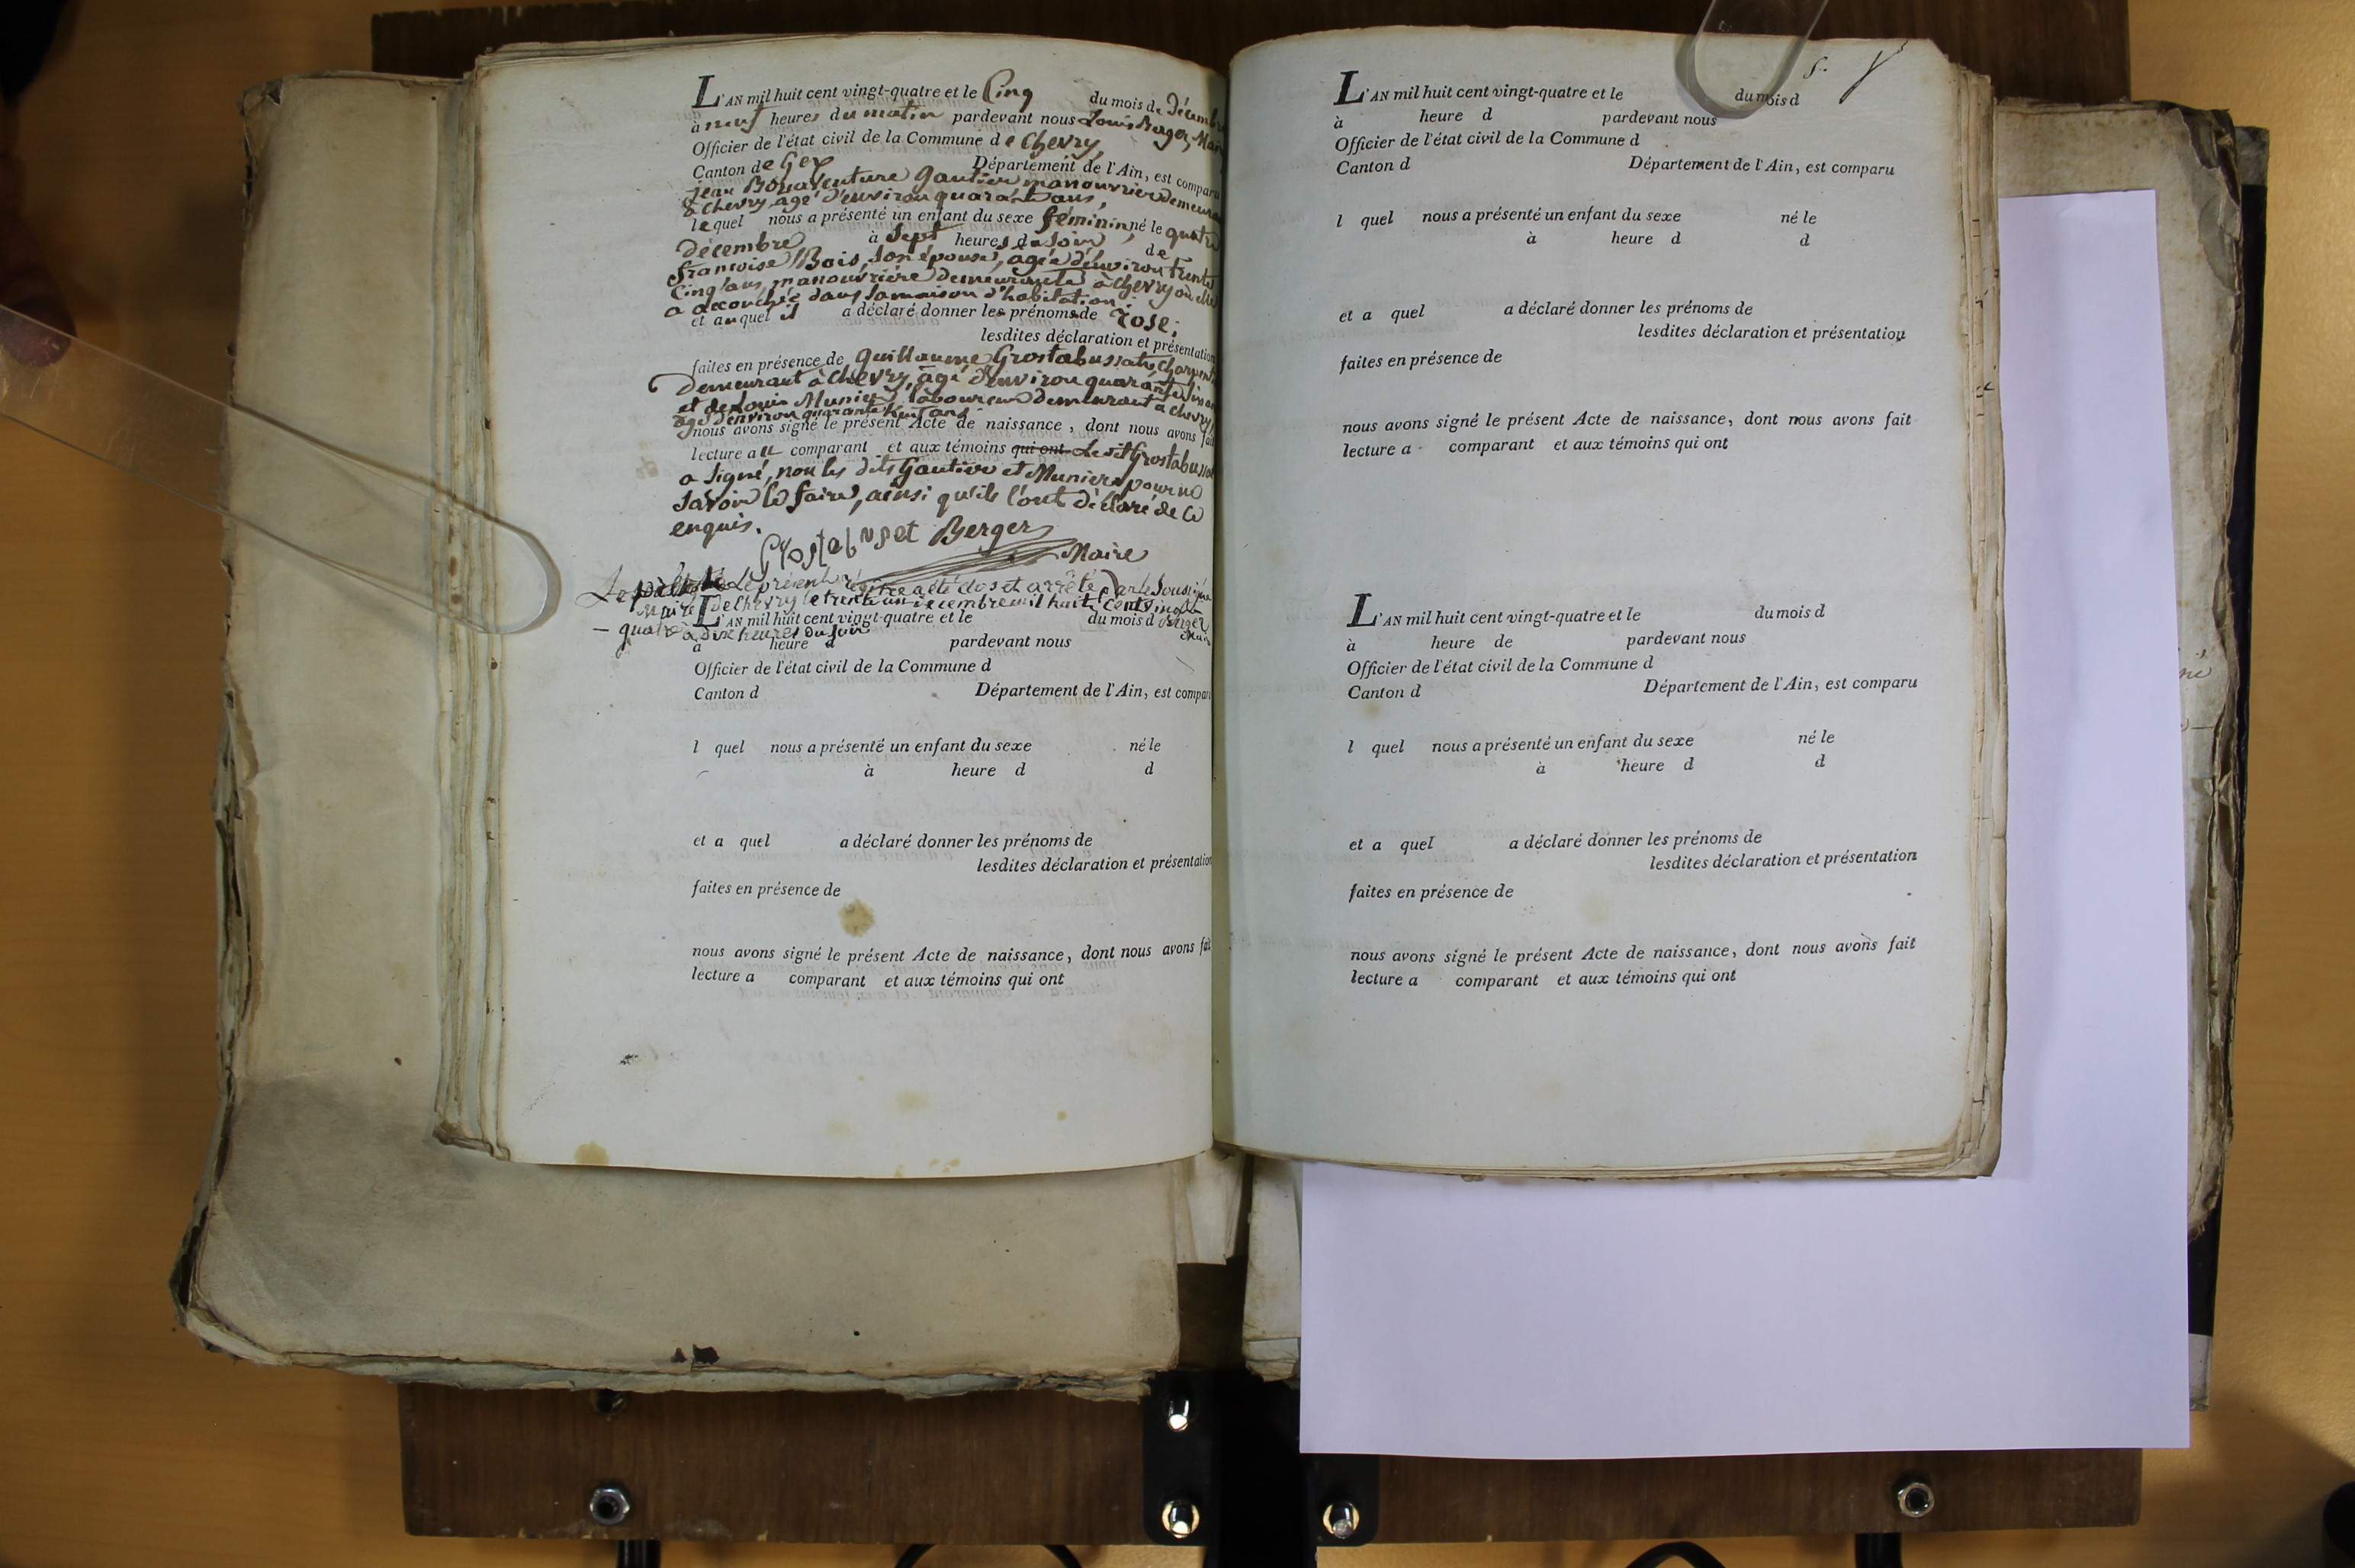 L'AN mil huit cent vingt-quatre et le Cinq du mois de Décembre
à neuf heures du matin pardevant nous Louis Berger, Maire
Officier de l'état civil de la Commune de Chevry,
Canton de Gex Département de l'Ain, est comparu
jean Bonaventure Gautier manouvrier demeurant
à Chevry, agé d'environ quarante ans,
lequel nous a présenté un enfant du sexe féminin, né le quatre
Décembre à Sept heures du soir, de
françoise Bois, son épouse, agée d'environ trente
Cinq ans, manouvrière demeurante à Chevry où elle
a accouchée dans sa maison d'habitation;
et auquel il a déclaré donner les prénoms de rose;
lesdites déclaration et présentation
faites en présence de Guillaume Grostabussat, Charpentier
Demeurant à Chevry, âgé d'environ quarante
et de Louis Munier, laboureur demeurant à Chevry,
âgé d'environ quarante huit ans
nous avons signé le présent Acte de naissance, dont nous avons fait
lecture au comparant et aux témoins qui ont Le dit Grostabussat
a Signé, non les dits Gautier et Munier pour ne
Savoir le faire, ainsi qu'ils l'ont déclaré de ce
enquis.
Grostabuset Berger
Maire
Le présent régitre a été clos et arrêté par le Soussigné
Maire de Chevry le trente un décembre mil huit cent vingt
- quatre à dix heures du soir Berger
Maire
L'AN mil huit cent vingt-quatre et le du mois d
à heure d pardevant nous
Officier de l'état civil de la Commune d
Canton d Département de l'Ain, est comparu
l quel nous a présenté un enfant du sexe né le
à heure d d
et a quel a déclaré donner les prénoms de
lesdites déclaration et présentation
faites en présence de
nous avons signé le présent Acte de naissance, dont nous avons fait
lecture a comparant et aux témoins qui ont
L'AN mil huit cent vingt-quatre et le du mois d
à heure d pardevant nous
Officier de l'état civil de la Commune d
Canton d Département de l'Ain, est comparu
l quel nous a présenté un enfant du sexe né le
à heure d d
et a quel a déclaré donner les prénoms de
lesdites déclaration et présentation
faites en présence de
nous avons signé le présent Acte de naissance, dont nous avons fait
lecture a comparant et aux témoins qui ont
L'AN mil huit cent vingt-quatre et le du mois d
à heure de pardevant nous
Officier de l'état civil de la Commune d
Canton d Département de l'Ain, est comparu
l quel nous a présenté un enfant du sexe né le
à heure d d
et a quel a déclaré donner les prénoms de
lesdites déclaration et présentation
faites en présence de
nous avons signé le présent Acte de naissance, dont nous avons fait
lecture a comparant et aux témoins qui ont